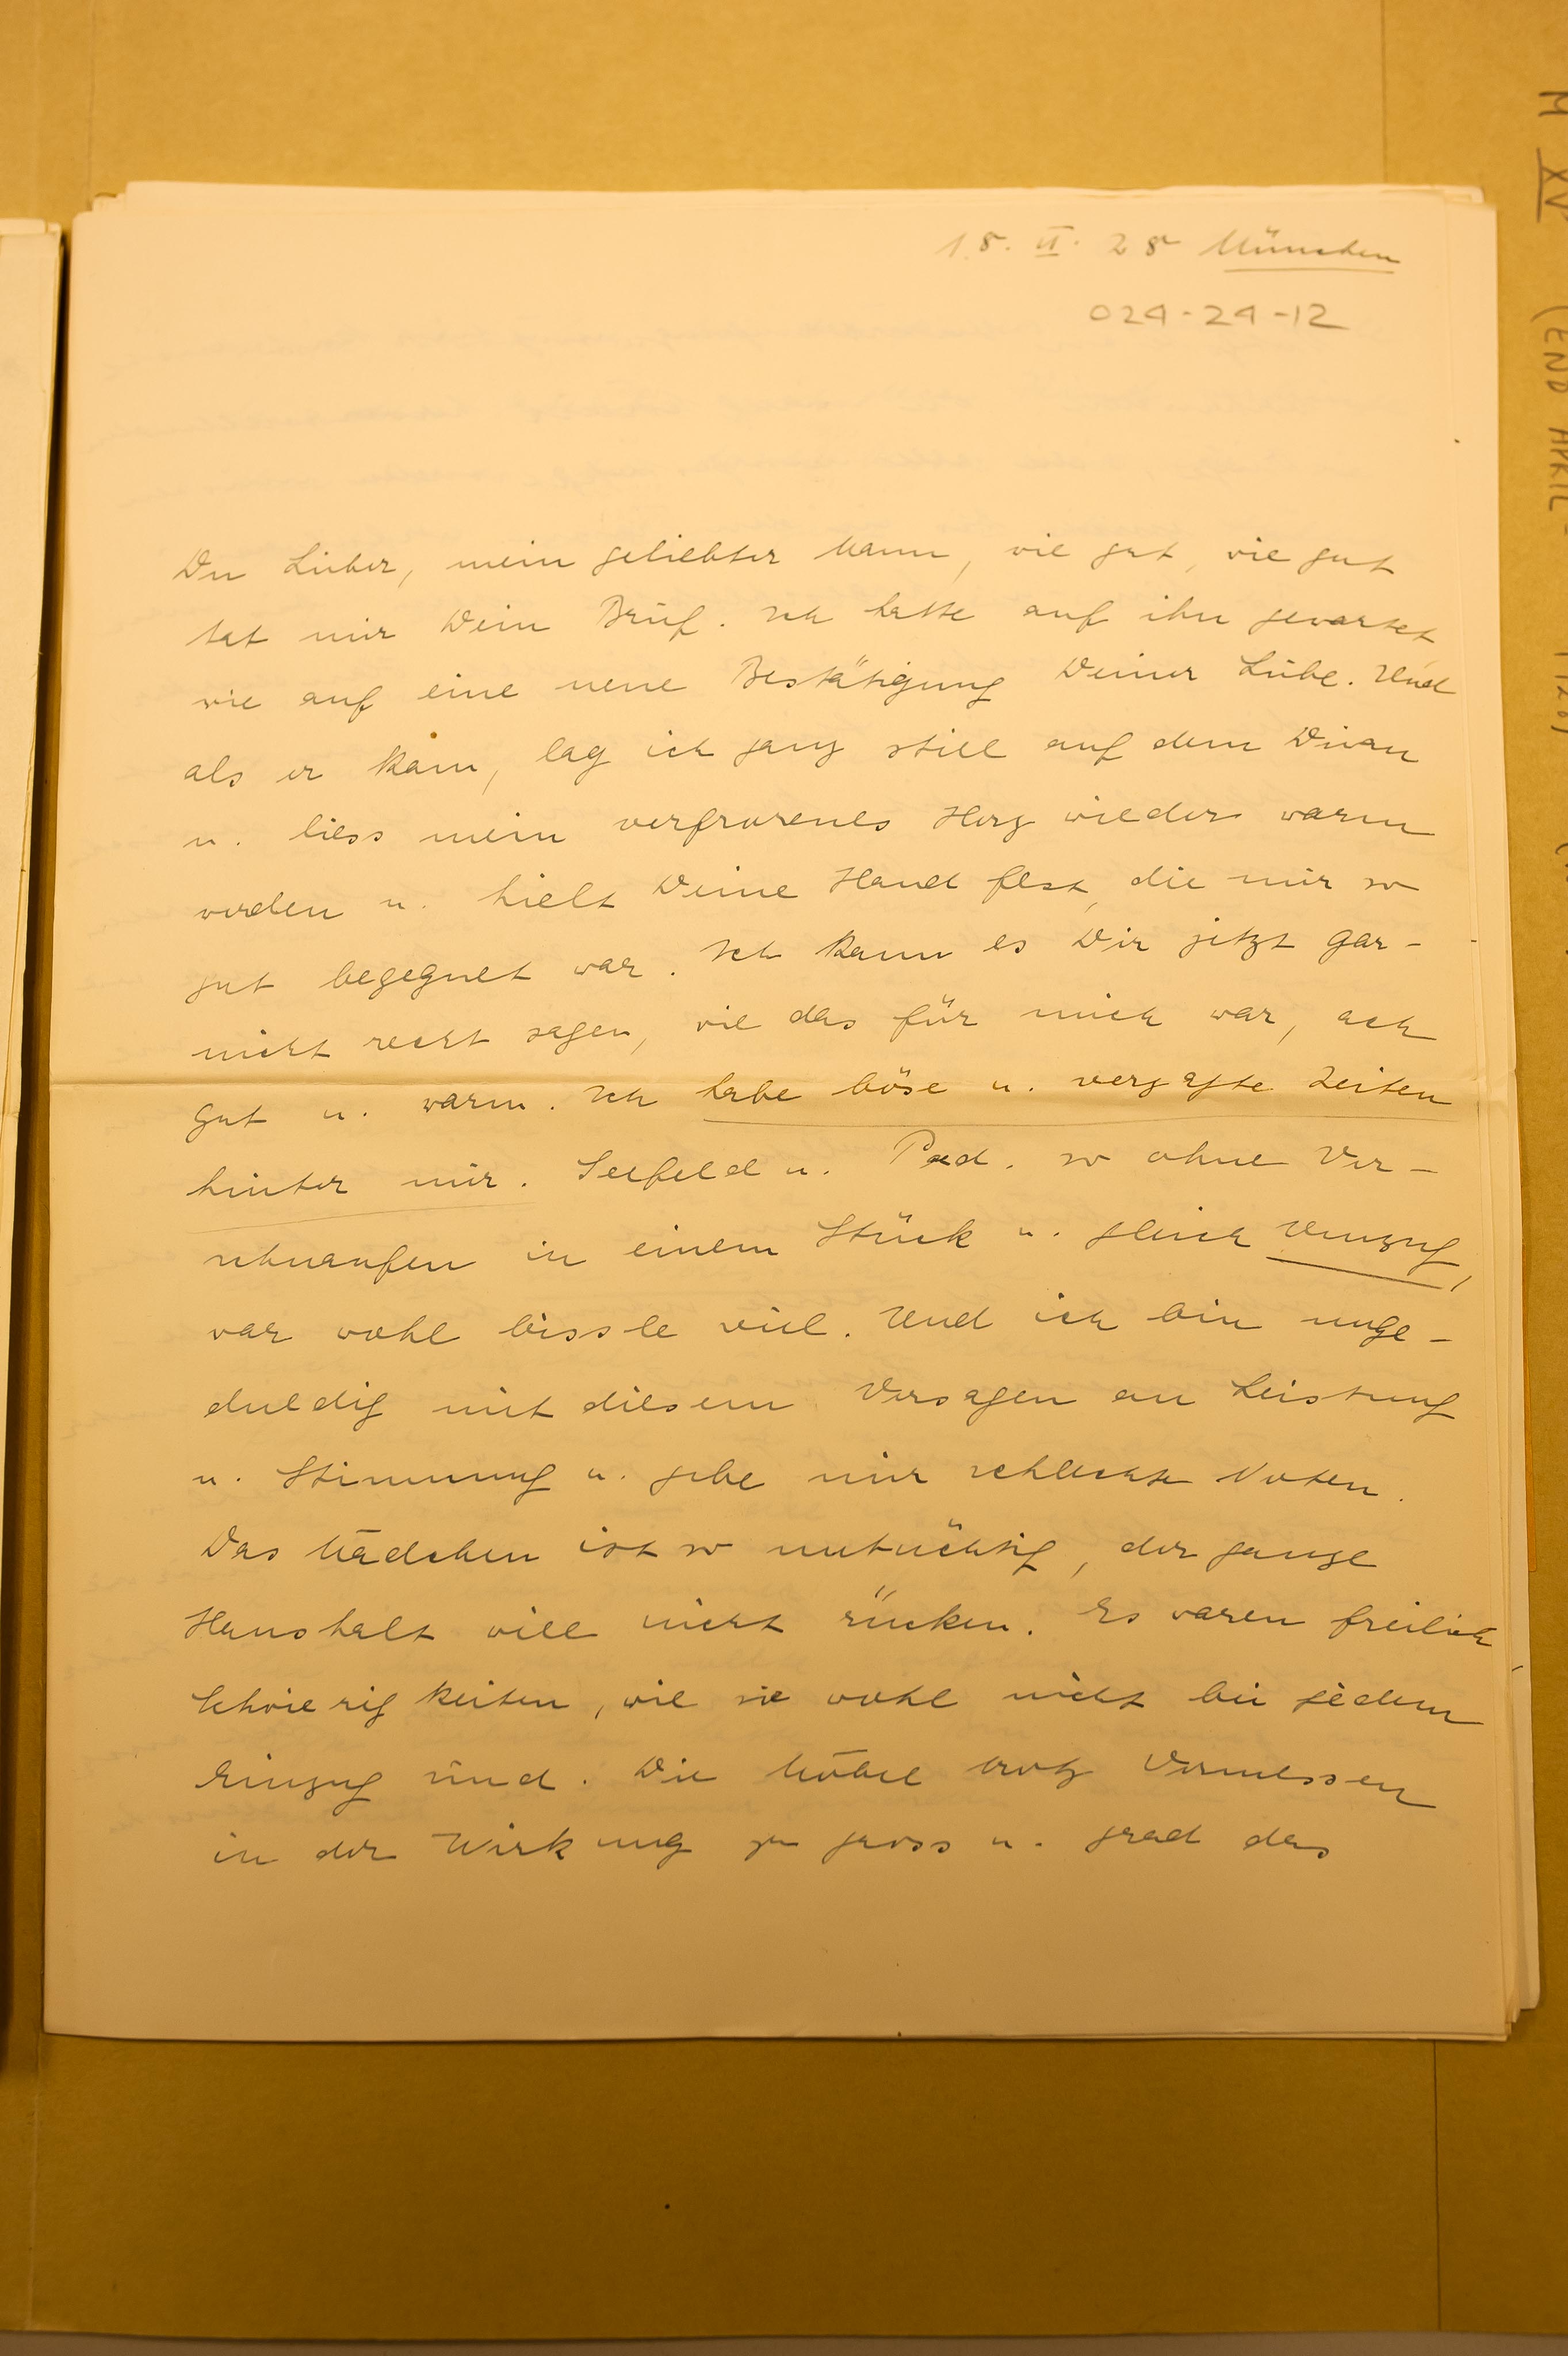 15. VI. 28 München
024-24-12
Du Lieber, mein geliebter Mann, wie gut, wie gut
tat mir Dein Brief. Ich hatte auf ihn gewartet
wie auf eine neue Bestätigung Deiner Liebe. Und
als er kam, lag ich ganz still auf dem Divan
u. liess mein verfrorenes Herz wieder warm
werden u. hielt Deine Hand fest, die mir so
gut begegnet war. Ich kann es Dir jetzt gar-
nicht recht sagen, wie das für mich war, ach
gut u. warm. Ich habe böse u. verzagte Zeiten
hinter mir. Seefeld u. Pad. so ohne Ver-
schnaufen in einem Stück u. gleich Umzug,
war wohl bissle viel. Und ich bin unge-
duldig mit diesem Versagen an Leistung
u. Stimmung u. gebe mir schlechte Noten.
Das Mädchen ist so untüchtig, der ganze
Haushalt will nicht rücken. Es waren freilich
Schwierigkeiten, wie sie wohl nicht bei jedem
Einzug sind. Die Möbel trotz Vermessen
in der Wirkung zu gross u. grad das
M XV (END APRIL -